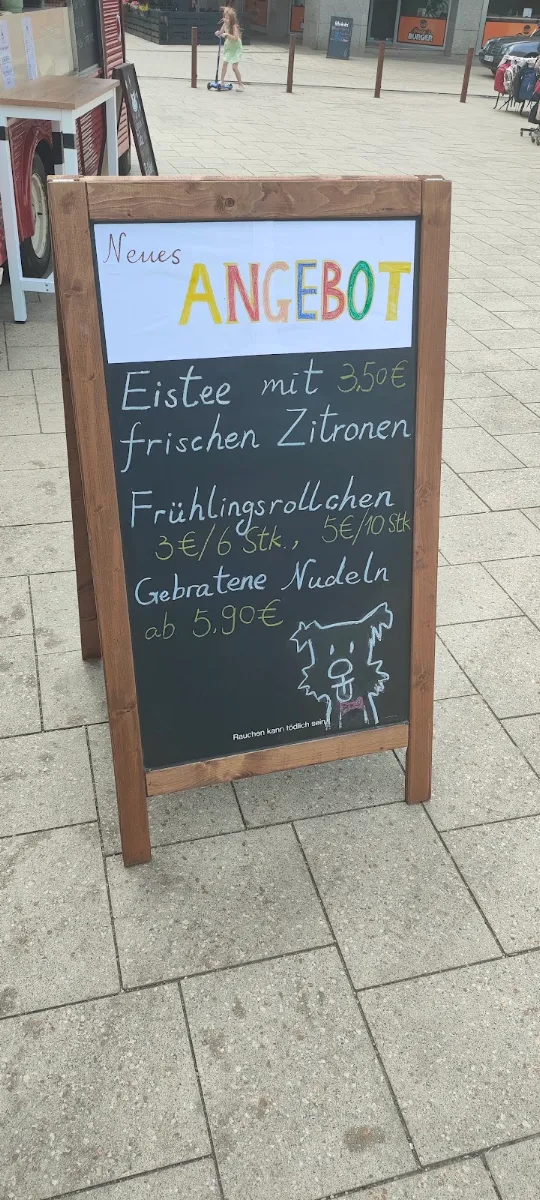 Neues
ANGEBOT
Eistee mit 3,50€
frischen Zitronen
Frühlingsrollchen
3€/6 Stk., 5€/10 Stk
Gebratene Nudeln
ab 5,90€
Rauchen kann tödlich sein
BURGER